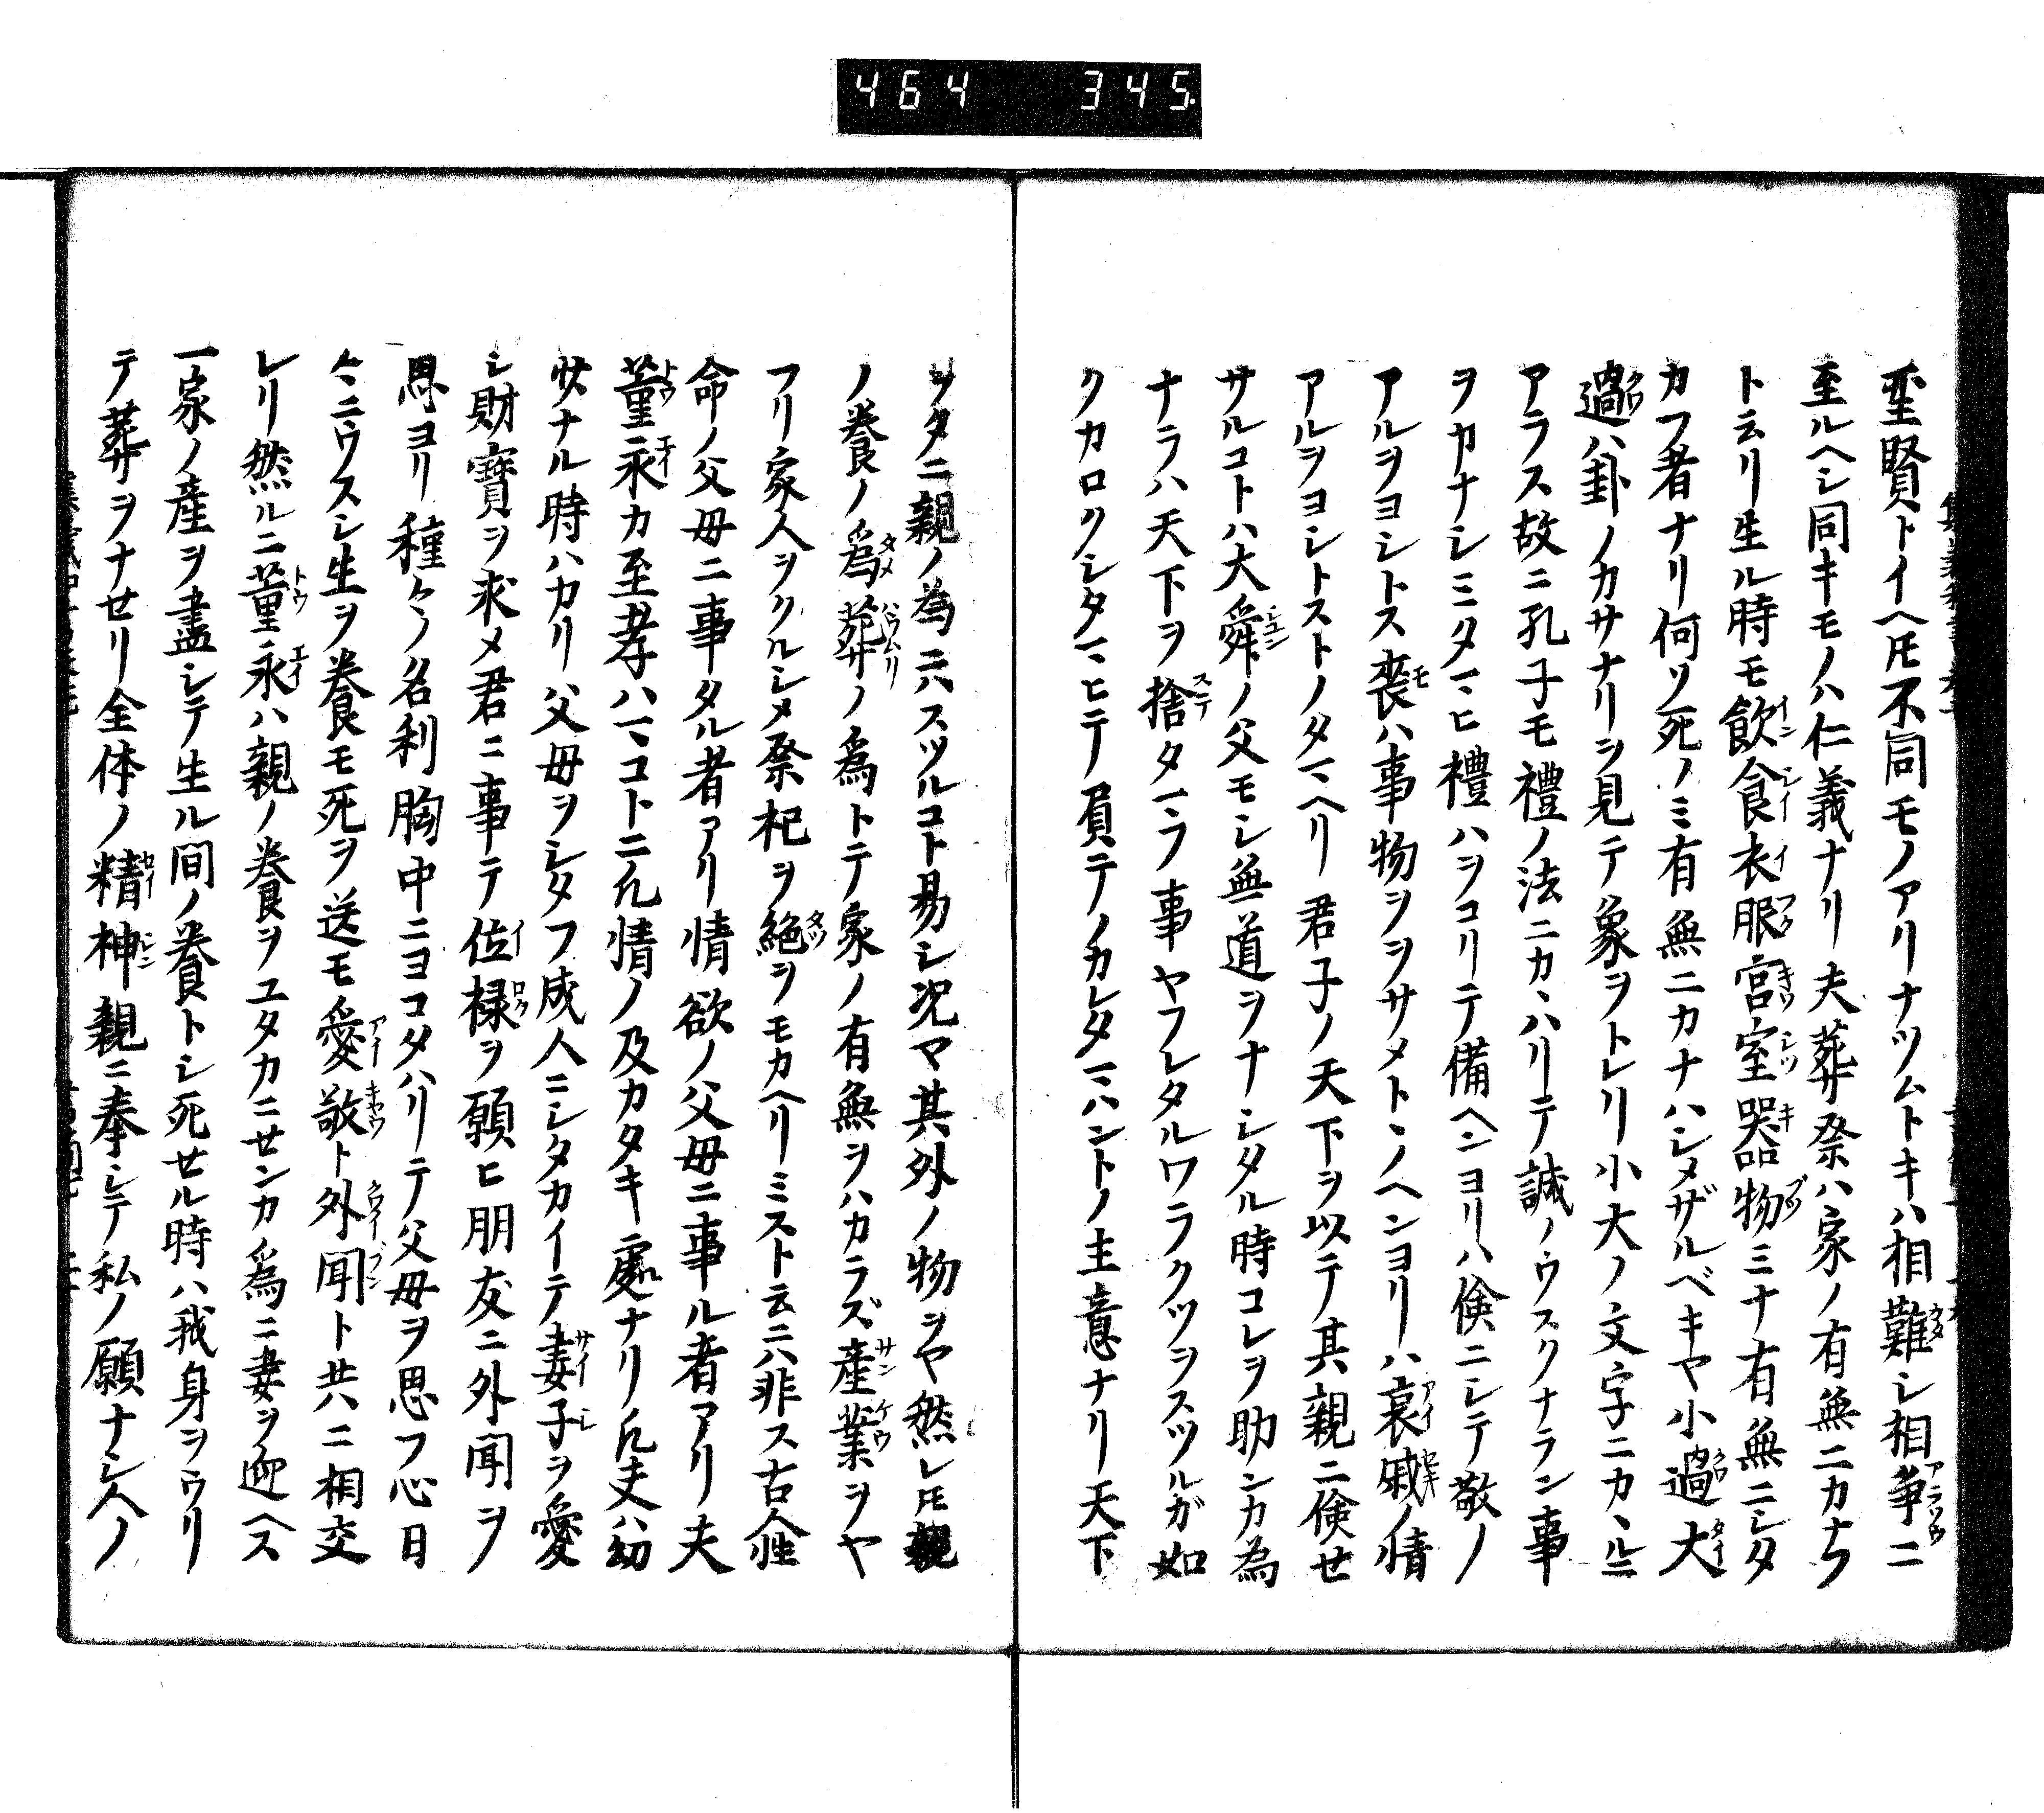 464 345
聖賢トイヘ𪜈不同モノアリナツムトキハ相難シ相爭ニ
至ルヘシ同キモノハ仁義ナリ夫葬祭ハ家ノ有無ニカナフ
ト云リ生ル時モ飲食衣服宮室器物ミナ有無ニシタ
カフ者ナリ何ソ死ノミ有無ニカナハシメザルベキヤ小過大
過ハ卦ノカサナリヲ見テ象ヲトレリ小大ノ文字ニカヽルニ
アラス故ニ孔子モ禮ノ法ニカヽハリテ誠ノウスクナラン事
ヲカナシミタマヒ禮ハヲコリテ備ヘンヨリハ倹ニシテ敬ノ
アルヲヨシトス喪ハ事物ヲヲサメトヽノヘンヨリハ哀戚ノ情
アルヲヨシトストノタマヘリ君子ノ天下ヲ以テ其親ニ倹せ
サルコトハ大舜ノ父モシ無道ヲナシタル時コレヲ助ンカ為
ナラハ天下ヲ捨タマフ事ヤフレタルワラクツヲスツルガ如
クカロクシタマヒテ負テノカレタマハントノ主意ナリ天下
ヲタニ親ノ為ニハスツルコト易シ况マ其外ノ物ヲヤ然レ𪜈親
ノ養ノ為葬ノ為トテ家ノ有無ヲハカラズ産業ヲヤ
フリ家人ヲクルシメ祭祀ヲ絶ヲモカヘリミスト云ニハ非ス古今性
命ノ父母ニ事タル者アリ情欲ノ父母ニ事ル者アリ夫
董永カ至孝ハマコトニ凡情ノ及カタキ處ナリ凡夫ハ幼
少ナル時ハカリ父母ヲシタフ成人ニシタカイテ妻子ヲ愛
シ財寳ヲ求メ君ニ事テ位禄ヲ願ヒ朋友ニ外聞ヲ
思ヨリ種々ノ名利胸中ニヨコタハリテ父母ヲ思フ心日
々ニウスシ生ヲ養モ死ヲ送モ愛敬ト外聞ト共ニ相交
レリ然ルニ董永ハ親ノ養ヲユタカニせンカ為ニ妻ヲ迎ヘス
一家ノ産ヲ盡シテ生ル間ノ養トシ死せル時ハ我身ヲウリ
テ葬ヲナせリ全体ノ精神親ニ奉シテ私ノ願ナシ人ノ